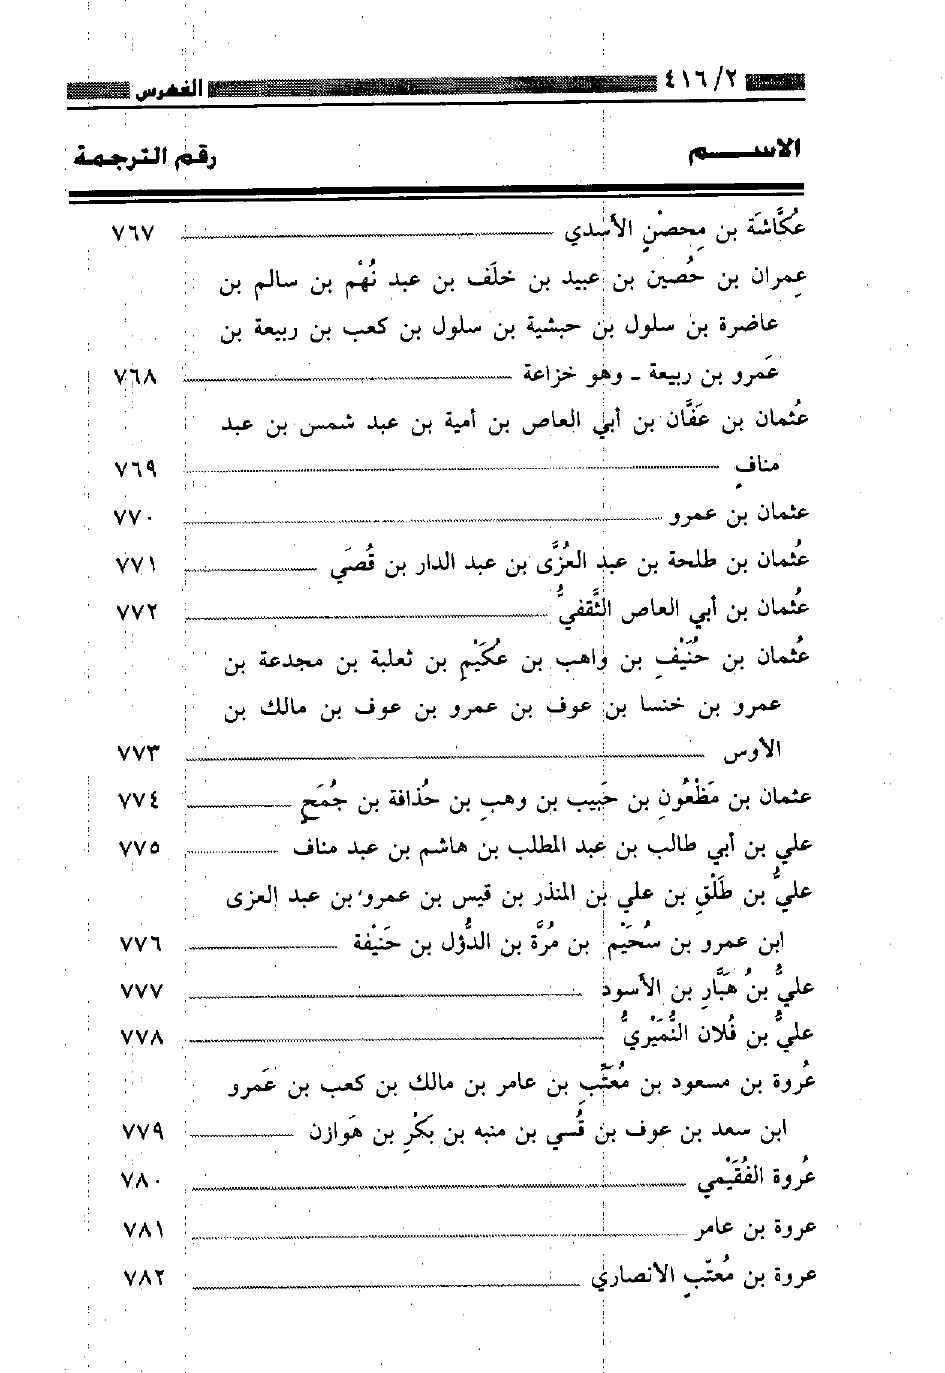 ٤١٦/٢ الفهرس
الاســـم رقم الترجمة
عُكَّاشَة بن مِحصْنٍ الأسدي ٧٦٧
عِمران بن حُصين بن عبيد بن خلَف بن عبد نُهْم بن سالم بن
عاضرة بن سلول بن حبشية بن سلول بن كعب بن ربيعة بن
عَمرو بن ربيعة ـ وهو خزاعة ٧٦٨
عُثمان بن عَفَّان بن أبي العاص بن أمية بن عبد شمس بن عبد
منافٍ ٧٦٩
عثمان بن عمرو ٧٧٠
عُثمان بن طلحة بن عبد العُزَّى بن عبد الدار بن قُصَي ٧٧١
عُثمان بن أبي العاص الثَّقفيُّ ٧٧٢
عُثمان بن حُنَيْفِ بن وَاهب بن عُكَيْمِ بن ثعلبة بن مجدعة بن
عمرو بن خنسا بن عوف بن عمرو بن عوف بن مالك بن
الأوس ٧٧٣
عثمان بن مَظْعُونِ بن حَبيب بن وهبِ بن حُذافة بن جُمَحٍ ٧٧٤
علي بن أبي طالب بن عبد المطلب بن هاشم بن عبد مناف ٧٧٥
عليُّ بن طَلْقِ بن علي بن المنذر بن قيس بن عمرو بن عبد العزى
ابن عمرو بن سُحَيْم بن مُرَّة بن الدُّؤل بن حَنَيْفة ٧٧٦
عليُّ بنُ هَبَّارِ بن الأسود ٧٧٧
عليُّ بن فُلان النُّمَيْريُّ ٧٧٨
عُروة بن مسعود بن مُعَتِّبِ بن عامر بن مالك بن كعب بن عَمرو
ابن سعد بن عوف بن قُسي بن منبه بن بَكْرِ بن هَوازن ٧٧٩
عُروة الفُقَيْمي ٧٨٠
عروة بن عامر ٧٨١
عروة بن مُعتّبٍ الأنصاري ٧٨٢